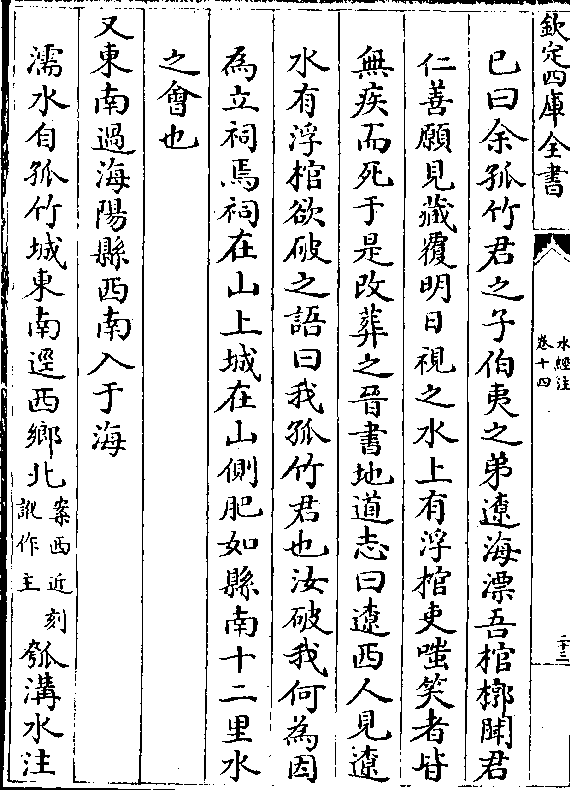 欽定四庫全書
水經注
卷十四
二十三
已曰余孤竹君之子伯夷之弟遼海漂吾棺槨聞君
仁善願見藏覆明日視之水上有浮棺吏嗤笑者皆
無疾而死于是改葬之晉書地道志曰遼西人見遼
水有浮棺欲破之語曰我孤竹君也汝破我何為因
為立祠焉祠在山上城在山側肥如縣南十二里水
之會也
又東南過海陽縣西南入于海
濡水自孤竹城東南逕西鄉北案西近刻訛作主瓠溝水注